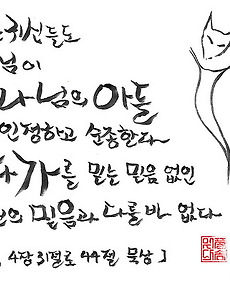 귀신들도
님이
나님의 아들
인정하고 순종한다
가를 믿는 믿음 없인
의 믿음과 다를바 없다
, 4장 31절로 44절 묵상 ]